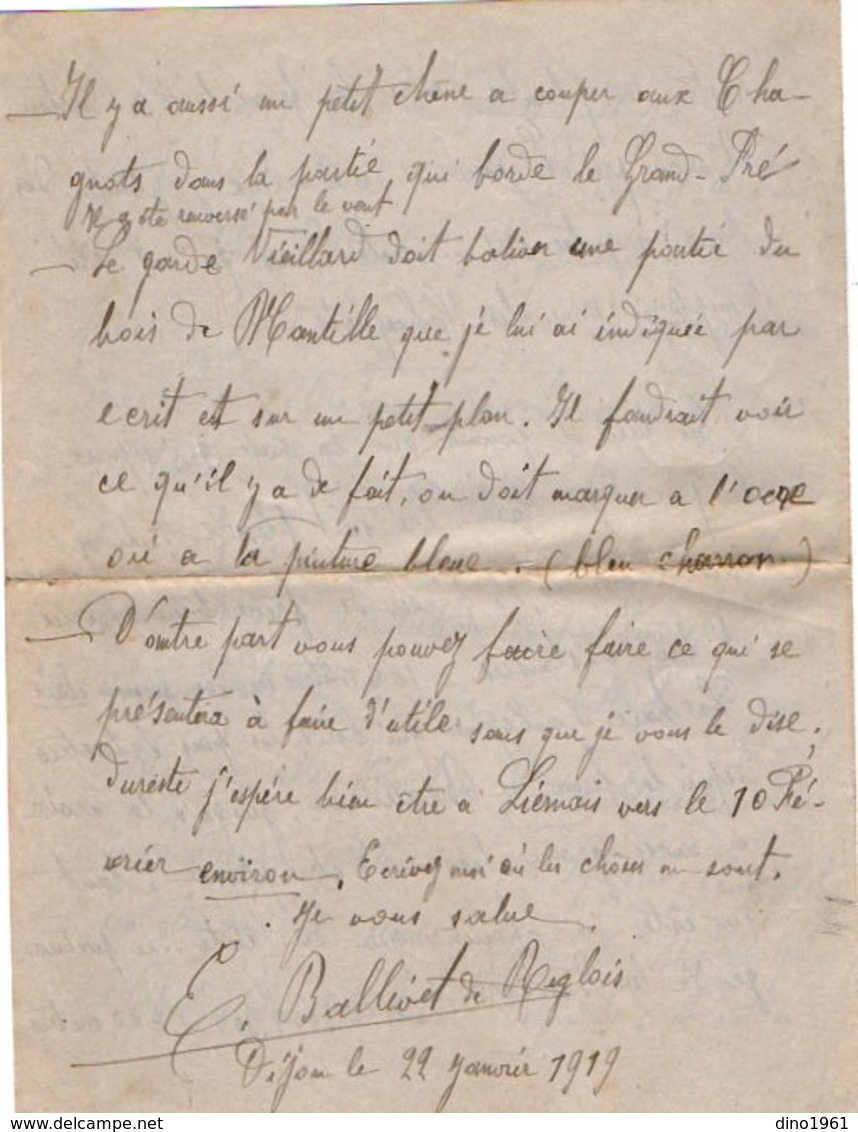 — Il y a aussi un petit chêne a couper aux Cha-
gnots dans la partie qui borde le Grand-Pré
Il a été renversé par le vent
— Le garde Vieillard doit baliver une partie du
bois de Mantille que je lui ai indiquée par
ecrit et sur un petit plan. Il faudrait voir
ce qu'il y a de fait, on doit marquer a l'ocre
ou a la peinture bleue. (bleu charron)
— D'autre part vous pouvez faire faire ce qui se
présentera à faire d'utile sans que je vous le dise,
du reste j'espère bien être à Liernais vers le 10 Fé-
vrier environ. Ecrivez moi où les choses en sont.
. Je vous salue
E. Ballivet de Reglois
Dijon le 22 Janvier 1919
dino1961